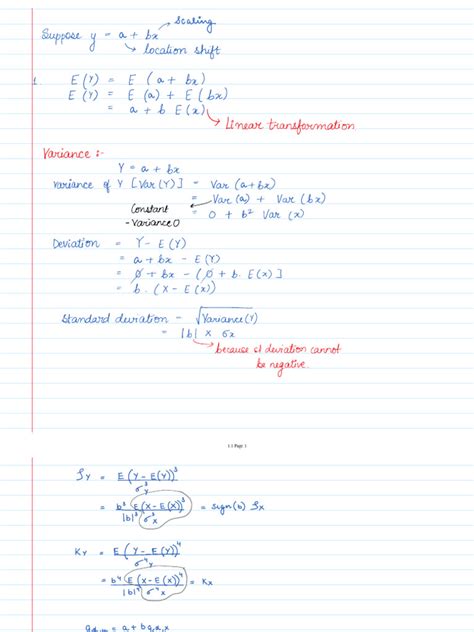 Scaling
Suppose y = a + bx
location shift
1. E(Y) = E (a + bx)
E(Y) = E(a) + E(bx)
= a + b E(x)
Linear transformation
Variance :-
Y = a + bx
Variance of Y [Var(Y)] = Var (a+bx)
= Var(a) + Var(bx)
Constant
- Variance 0
= 0 + b² Var (x)
Deviation = Y - E(Y)
= a + bx - E(Y)
= a + bx - (a + b. E(x)]
= b. (X - E(x))
Standard deviation - √Variance(Y)
= |b| x σx
because st deviation cannot
be negative.
1.1 Page 1
ζY = E(Y - E(Y))³ / σ³Y
= b³ E(X - E(X))³ / |b|³ σ³x = sign(b) ζx
KY = E(Y - E(Y))⁴ / σ⁴Y
= b⁴ E(X - E(X))⁴ / |b|⁴ σ⁴x = Kx
= a + b